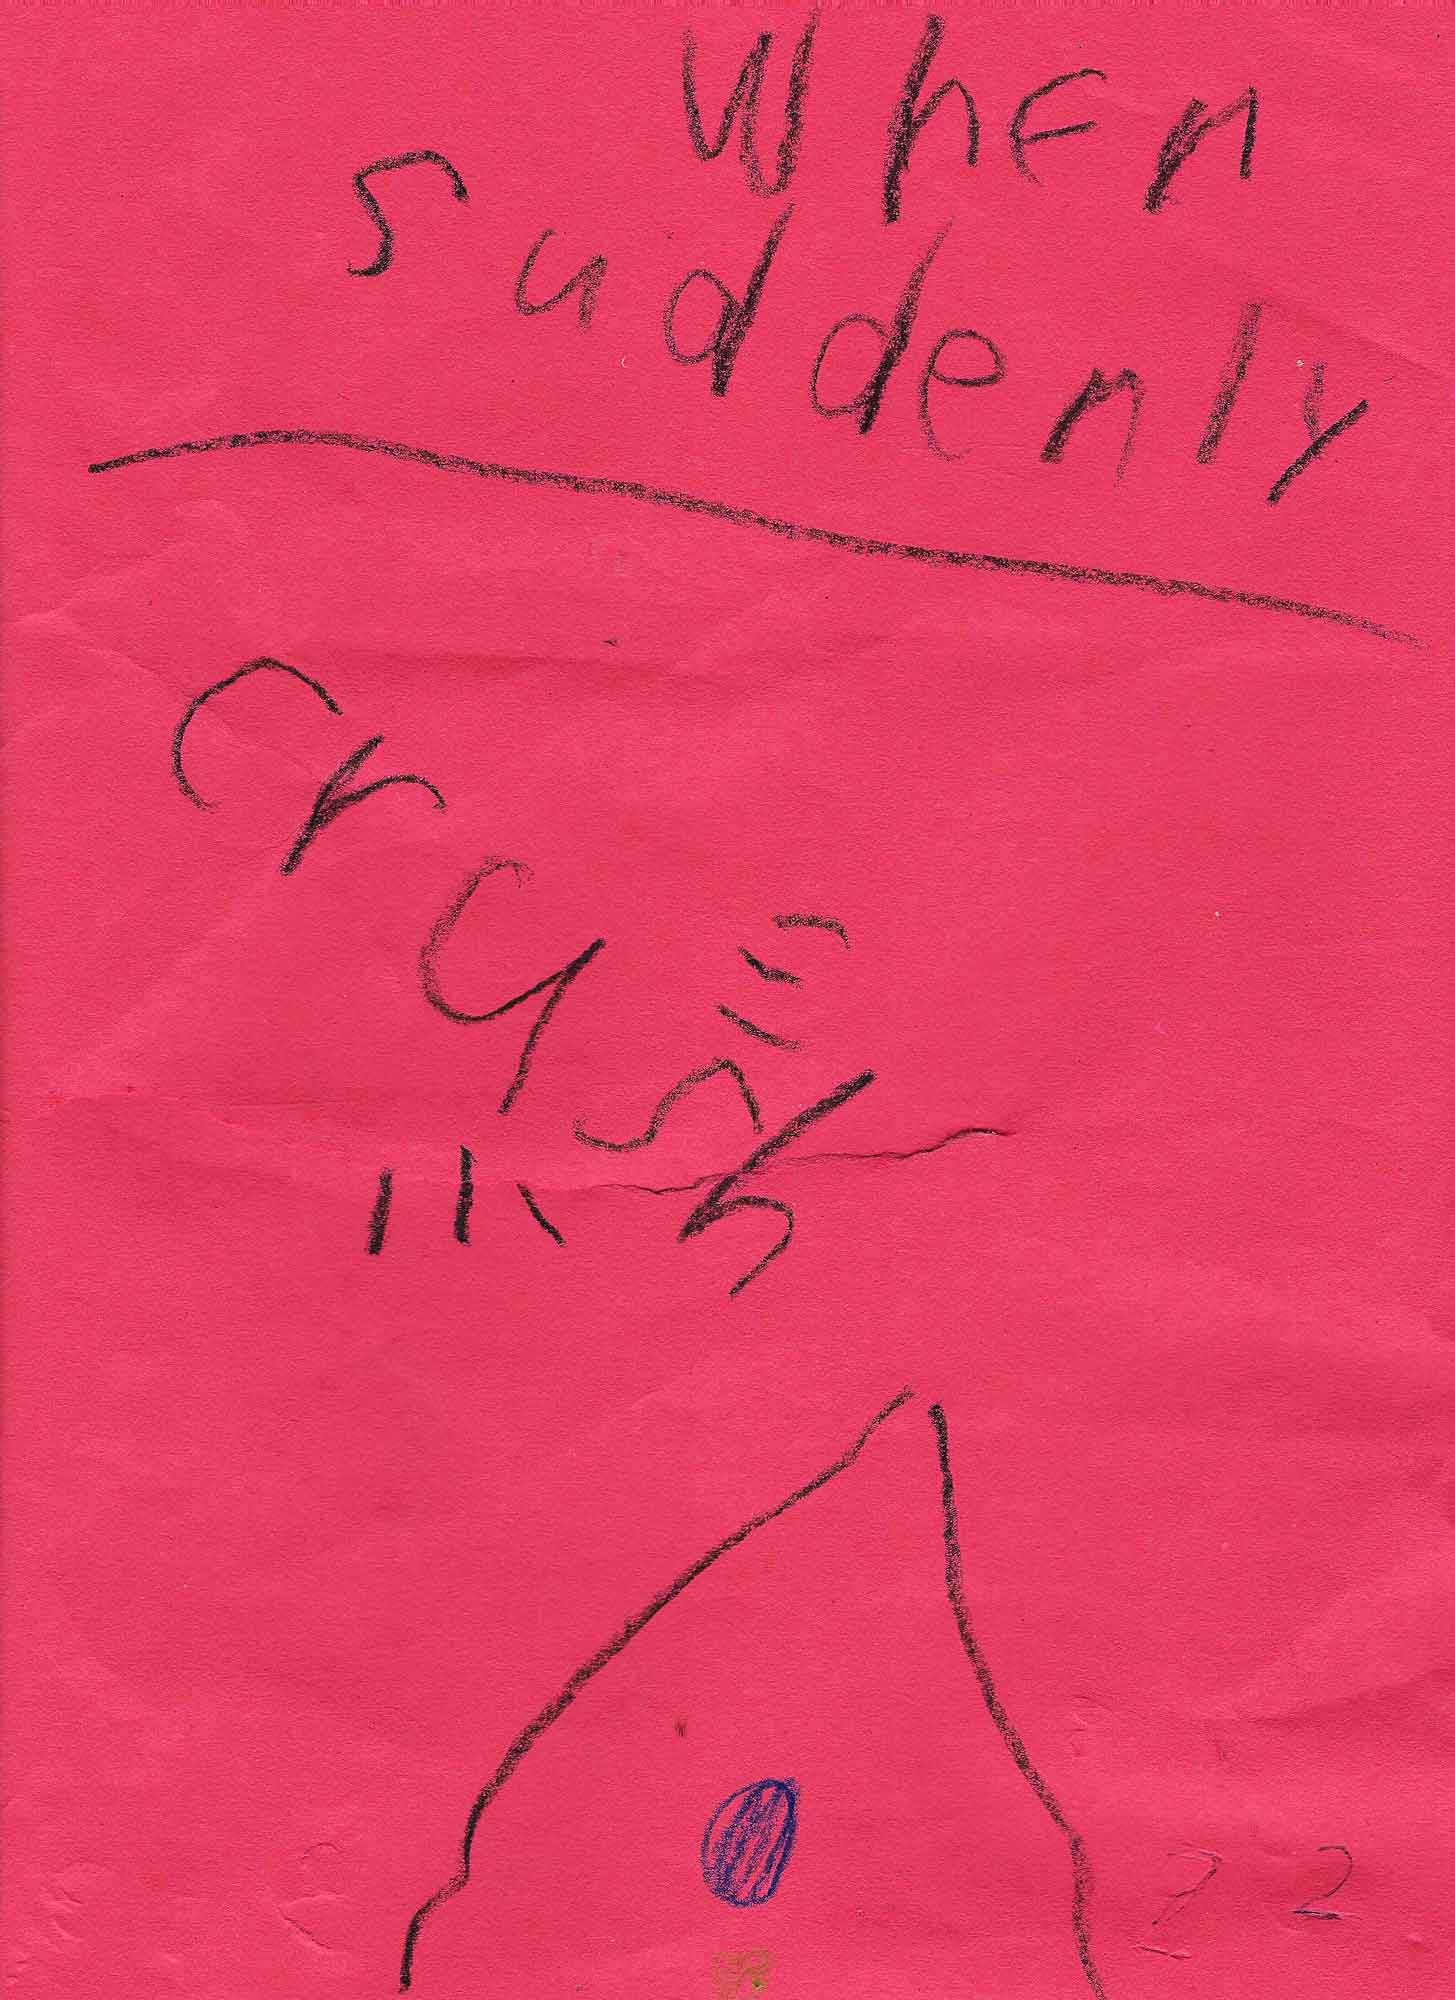 When
suddenly
crash
22